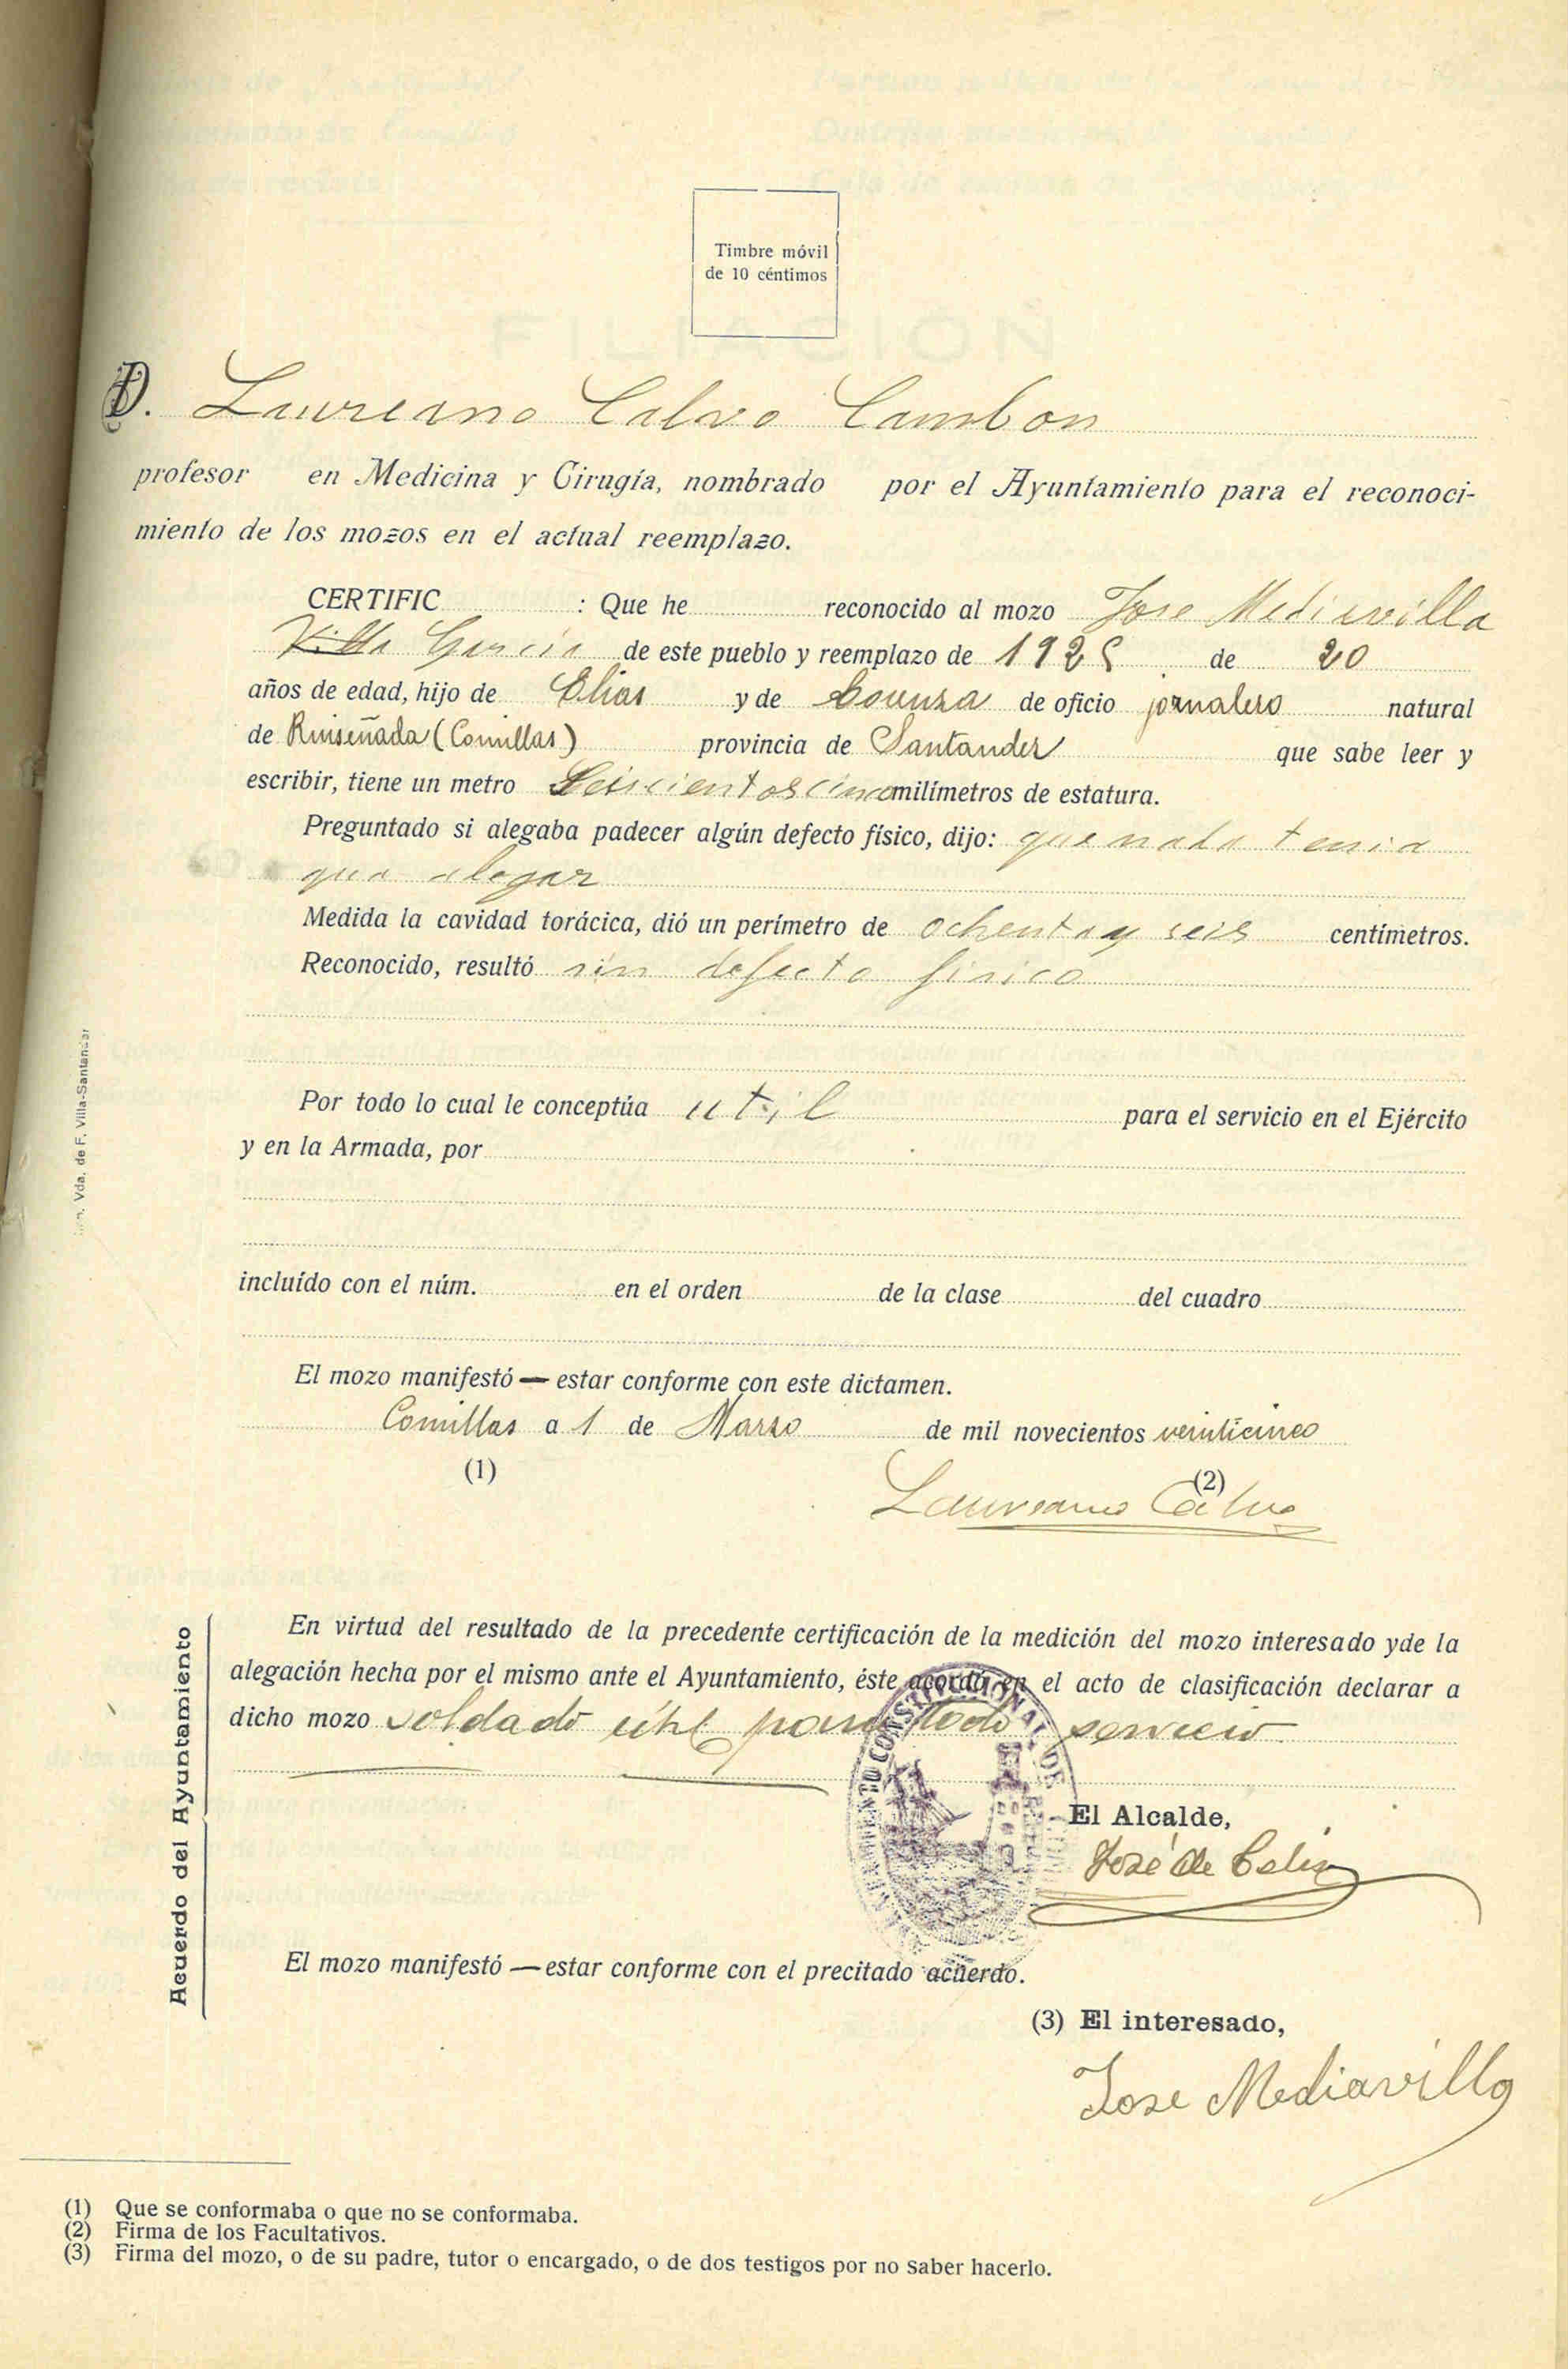 Timbre móvil
de 10 céntimos
D. Laureano Calvo Cambon
profesor en Medicina y Cirugía, nombrado por el Ayuntamiento para el reconoci-
miento de los mozos en el actual reemplazo.
CERTIFIC : Que he reconocido al mozo Jose Mediavilla
Villa Garcia de este pueblo y reemplazo de 1925 de 20
años de edad, hijo de Elias y de de oficio jornalero natural
de Ruiseñada (Comillas) provincia de Santander que sabe leer y
escribir, tiene un metro Seiscientos cinco milímetros de estatura.
Preguntado si alegaba padecer algún defecto físico, dijo: que nada tenia
que alegar
Medida la cavidad torácica, dió un perímetro de ochenta y seis centímetros.
Reconocido, resultó sin defecto fisico
Por todo lo cual le conceptúa util para el servicio en el Ejército
y en la Armada, por
incluído con el núm. en el orden de la clase del cuadro
El mozo manifestó — estar conforme con este dictamen.
Comillas a 1 de Marzo de mil novecientos veinticinco
(1) (2)
Laureano Calvo
En virtud del resultado de la precedente certificación de la medición del mozo interesado y de la
alegación hecha por el mismo ante el Ayuntamiento, éste acordó en el acto de clasificación declarar a
dicho mozo soldado útil para todo servicio
El Alcalde,
José de Celis
El mozo manifestó — estar conforme con el precitado acuerdo.
(3) El interesado,
Jose Mediavilla
Acuerdo del Ayuntamiento
Vda. de F. Villa-Santander
(1) Que se conformaba o que no se conformaba.
(2) Firma de los Facultativos.
(3) Firma del mozo, o de su padre, tutor o encargado, o de dos testigos por no saber hacerlo.